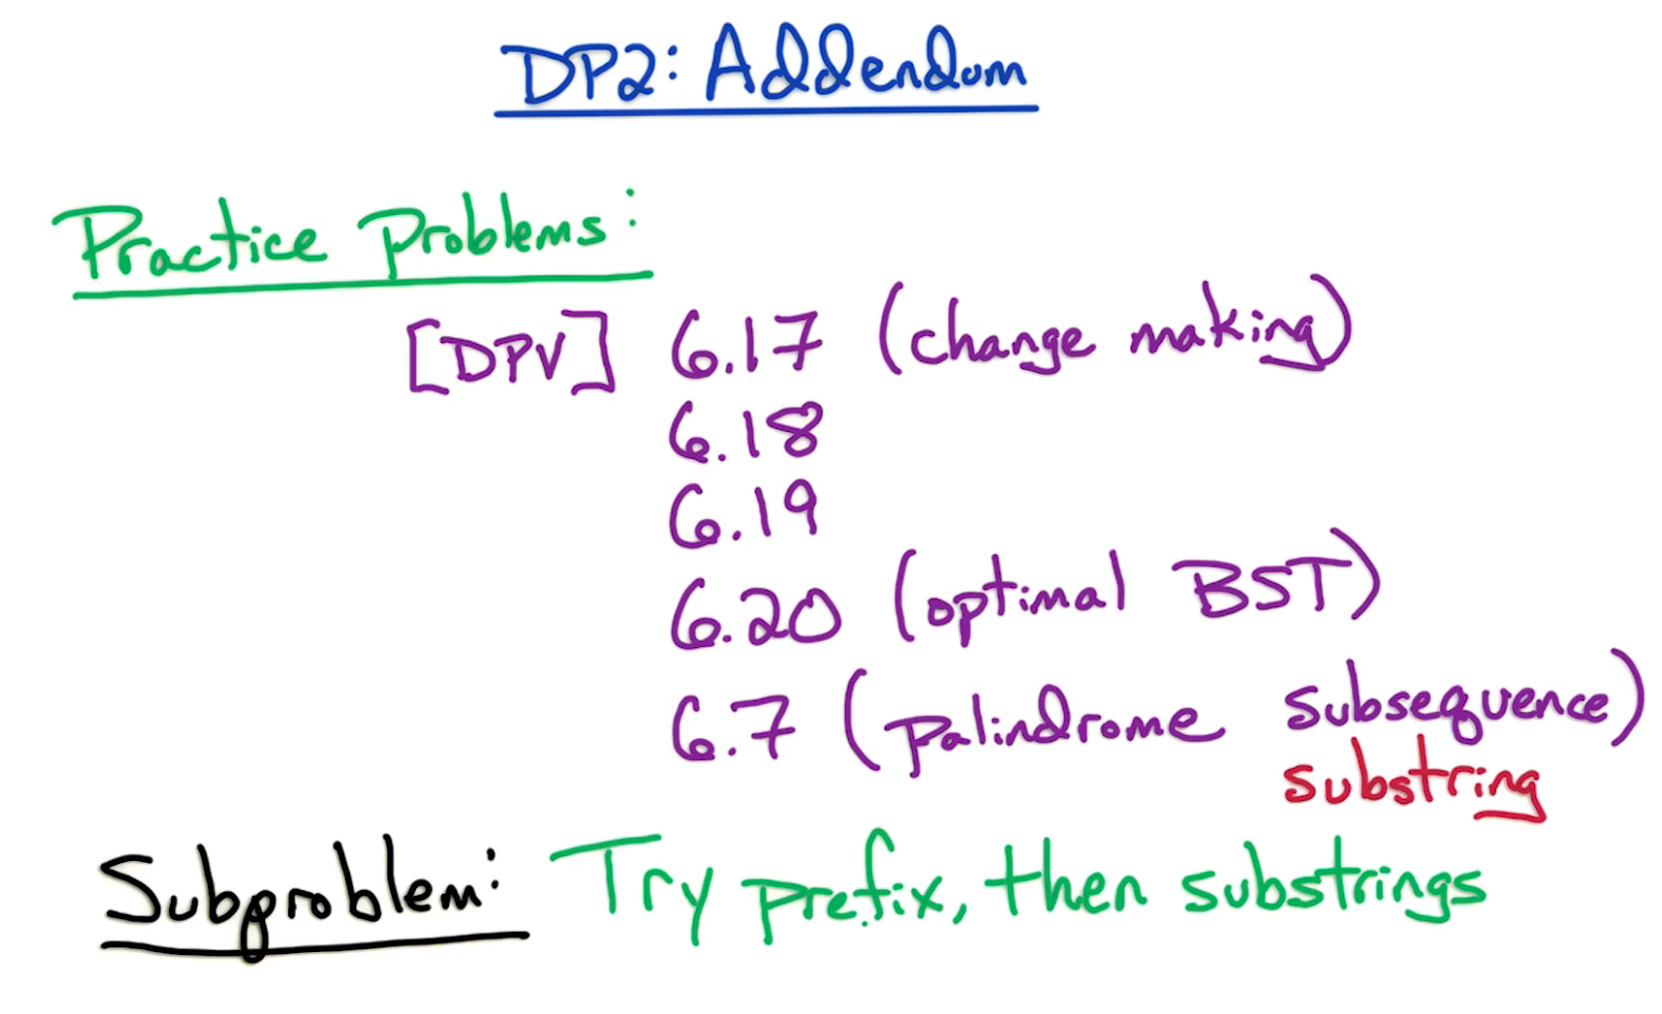 DP2: Addendum
Practice Problems:
[DPV] 6.17 (change making)
6.18
6.19
6.20 (optimal BST)
6.7 (palindrome subsequence)
substring
Subproblem: Try prefix, then substrings